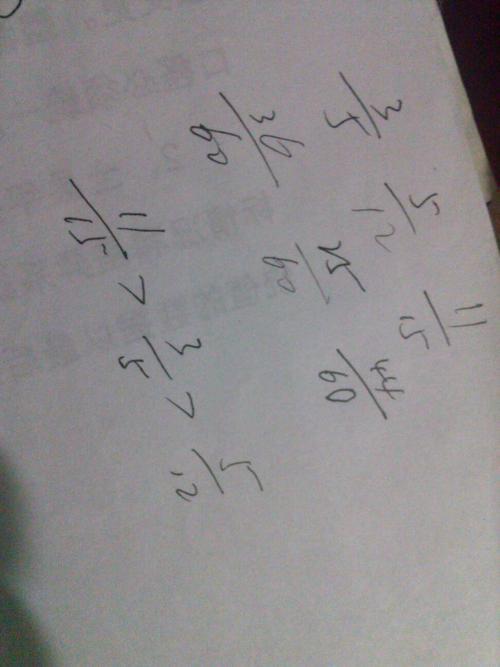 3/5 5/12 11/15
36/60 25/60 44/60
11/15 > 3/5 > 5/12